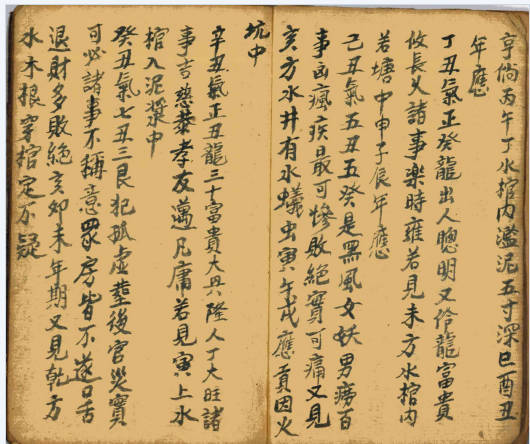 亨倘丙午丁水棺内濫泥五寸深巳酉丑
年應
丁丑氣正癸龍出人聰明又伶龍富貴
攸長久諸事樂時雍若見未方水棺内
若塘中申子辰年應
己丑氣五丑五癸是黑風女妖男癆百
事凶瘋疾最可慘敗絕實可痛又見
亥方水井有水蟻虫寅午戌應頁因火
坑中
辛丑氣正丑龍三十富貴大興隆人丁大旺諸
事吉慈恭孝友邁凡庸若見寅上水
棺入泥漿中
癸丑氣七丑三艮犯孤虛塟後官災實
可必諸事不稱意眾房皆不遂口舌
退財多敗絕亥卯未年期又見乾方
水木根穿棺定不疑